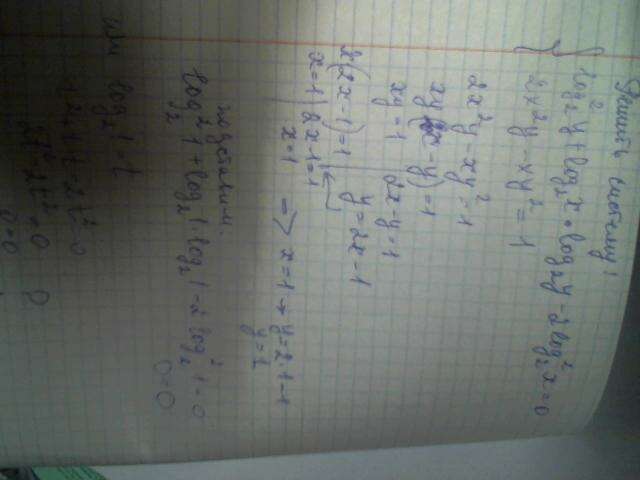 Решить систему!
{ log₂²y + log₂x • log₂y - 2log₂²x = 0
2x²y - xy² = 1
2x²y - xy² = 1
xy(2x - y) = 1
xy = 1 | 2x - y = 1
y = 2x - 1
x(2x - 1) = 1
x = 1 | 2x - 1 = 1
x = 1 => x = 1 → y = 2·1 - 1
y = 1
подставим:
log₂²1 + log₂1·log₂1 - 2log₂²1 = 0
0 = 0
или log₂1 = t
t² + t·t - 2t² = 0
2t² - 2t² = 0
0 = 0